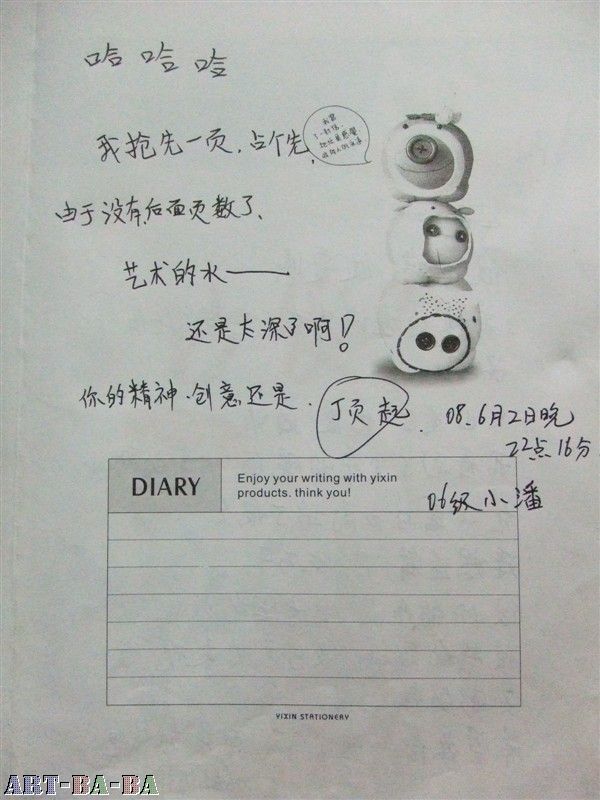 哈哈哈
我抢先一页.占个先,
由于没有后面页数了、
艺术的水——
还是太深了啊!
你的精神.创意还是. 顶起. 08.6月2日晚
22点16分
DIARY
Enjoy your writing with yixin
products. think you!
06级小潘
YIXIN STATIONERY
ART-BA-BA